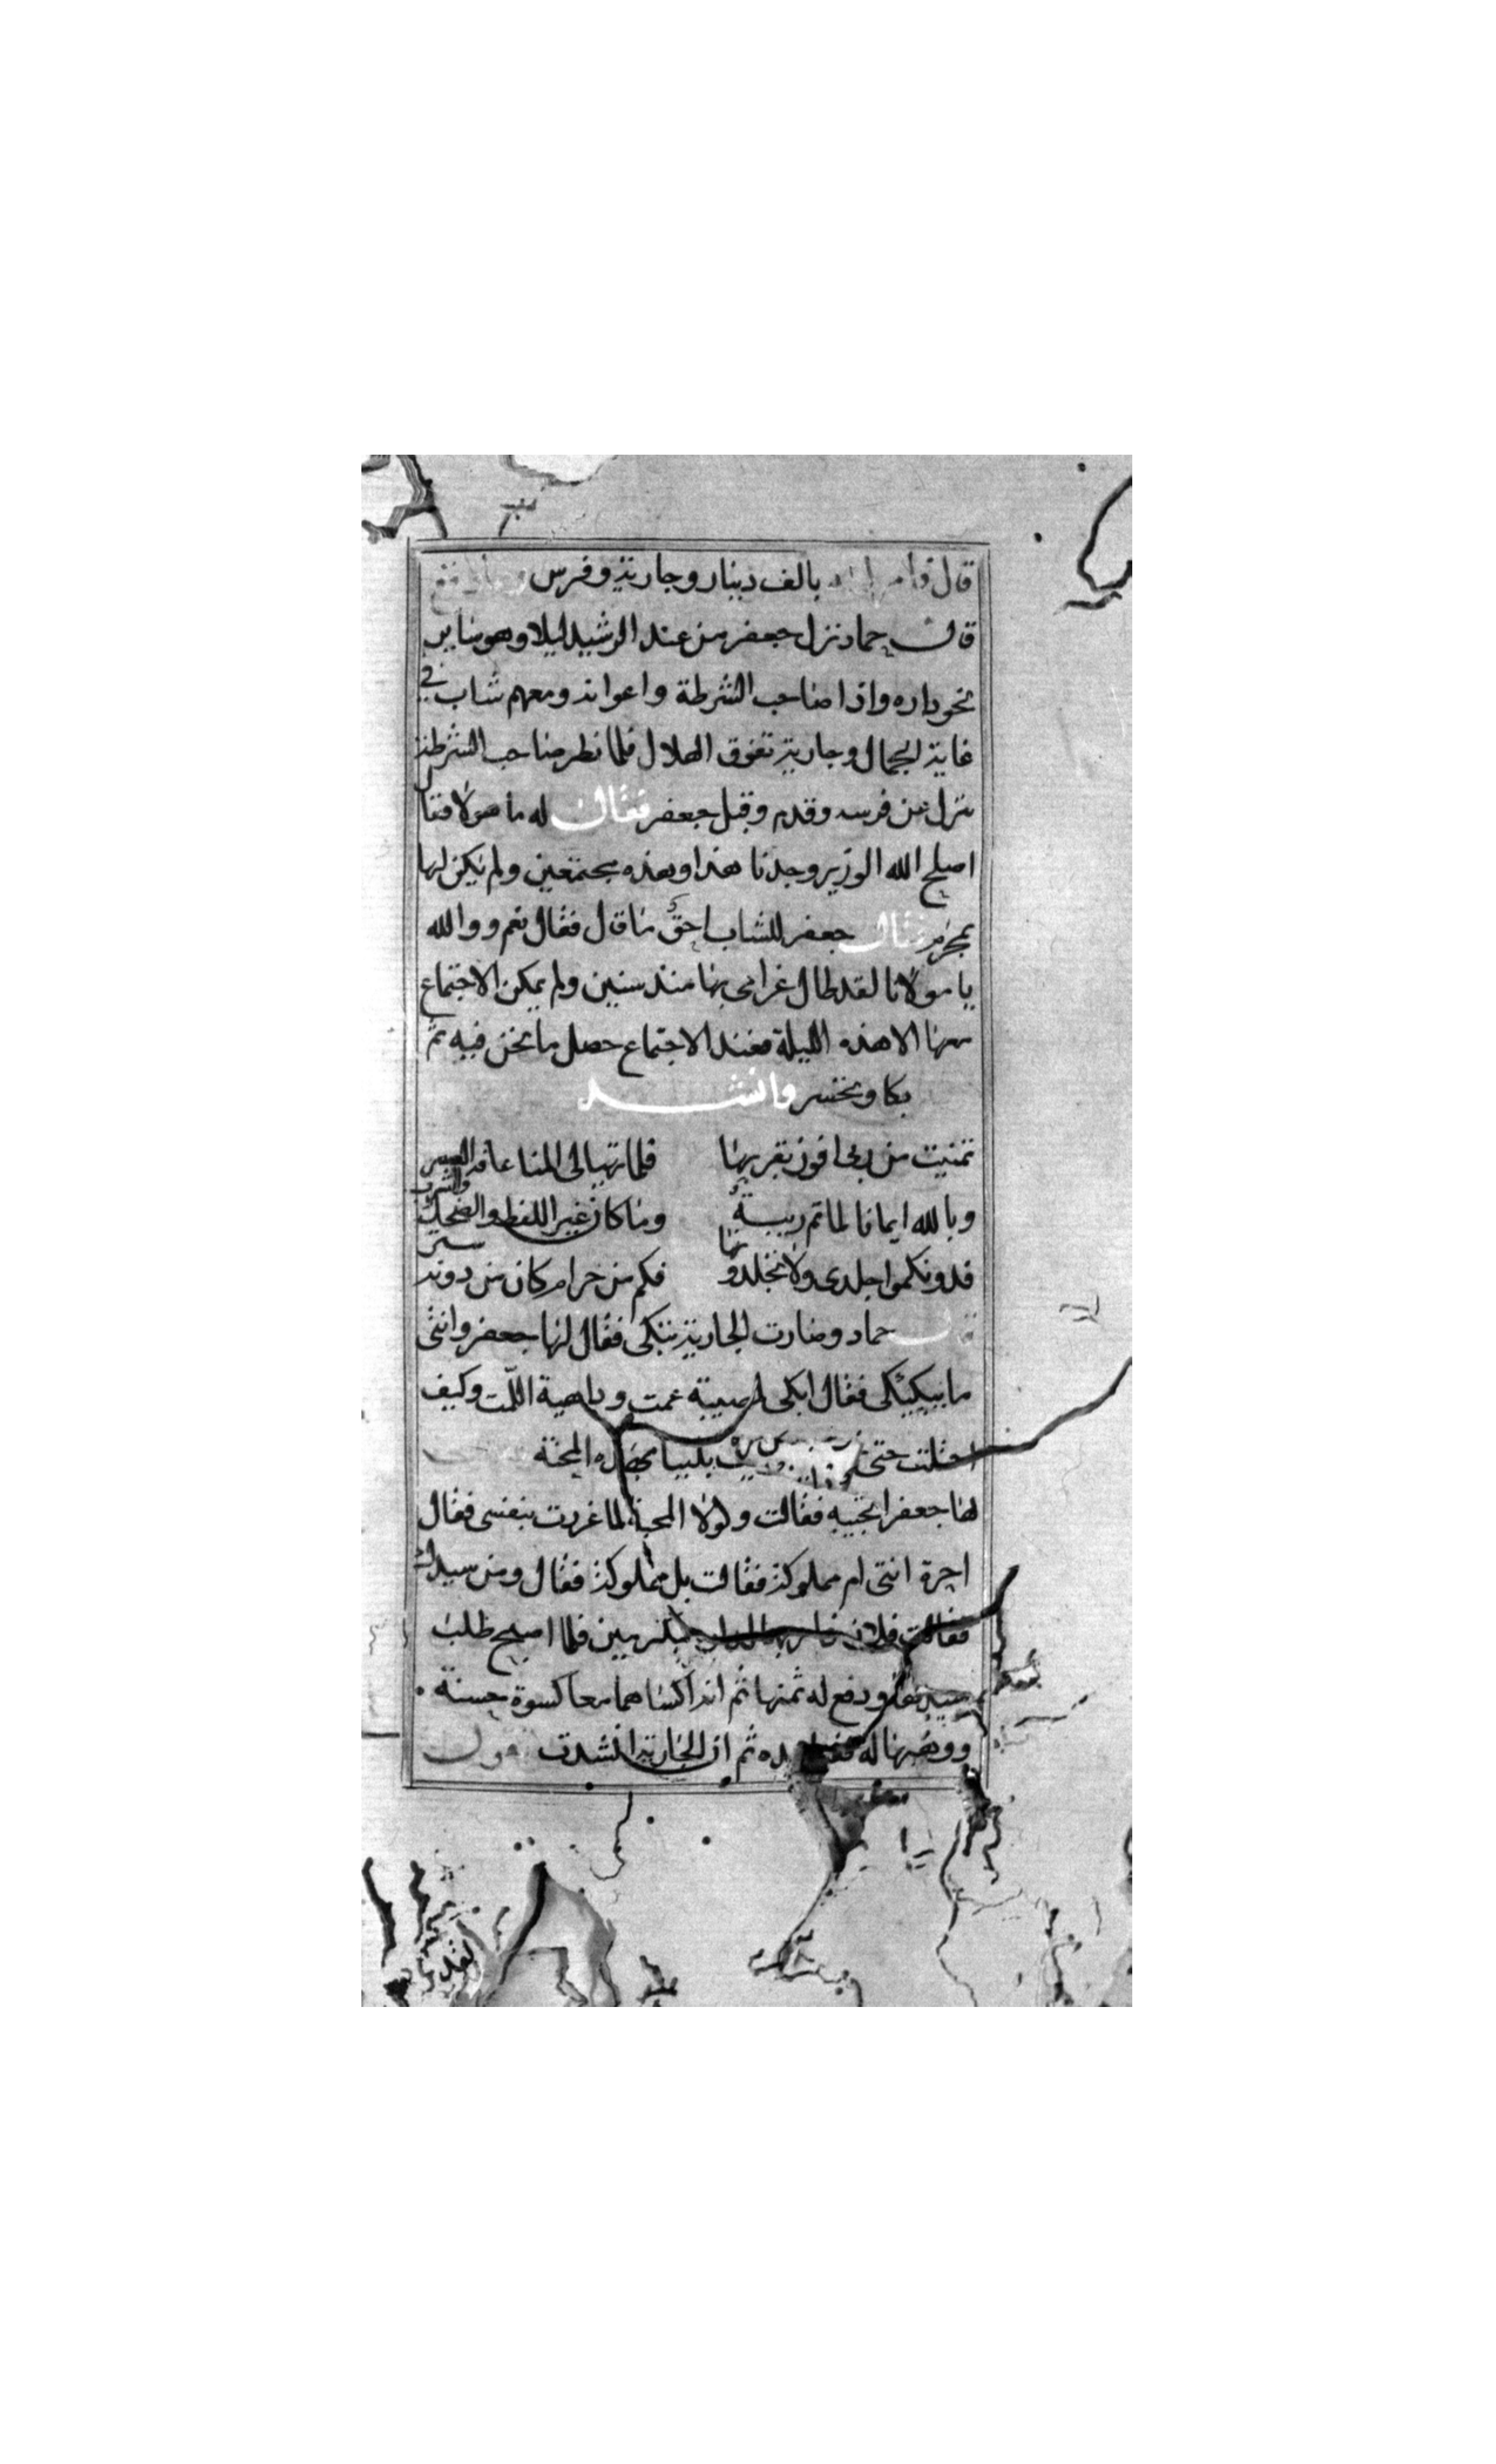 قال فامر له بالف دينار وجارية وفرس
قال حماد نزل جعفر من عند الرشيد ليلا وهو ساير
نحو داره واذا صاحب الشرطة واعوانه ومعهم شاب في
غاية الجمال وجارية تفوق الهلال فلما نظر صاحب الشرطة
نزل عن فرسه وقدم وقبل جعفر فقال له ما هولا فقال
اصلح الله الوزير وجدنا هذا وهذه مجتمعين ولم يكن لها
بمحرم فقال جعفر للشاب احق ما قال فقال نعم ووالله
يا مولانا لقد طال غرامى بها منذ سنين ولم يمكن الاجتماع
معها الا هذه الليلة فعند الاجتماع حصل ما نحن فيه ثم
بكا وتحسر وانشد
تمنيت من ربى افوز بقربها فلما تهيا لى المنا عاقه العسر
وبالله ايمانا لما تم ريبة وما كان غير اللفظ والضحك والشرب
فدونكموا جلدى ولا تجلدونها فكم من حرام كان من دونه ستر
قال حماد وصارت الجارية تبكى فقال لها جعفر وانتى
ما يبكيكى فقال ابكى لمصيبة عمت وداهية المت وكيف
احتلت حتى بليبا بهذه المحنة
لها جعفر اتحبيه فقالت ولولا المحبة لما غررت بنفسى فقال
احرة انتى ام مملوكة فقالت بل مملوكة فقال ومن سيدك
فقالت فلان فلما اصبح طلب
سيدها ودفع له ثمنها ثم انه اكساهما معا كسوة حسنة
ووهبها له يده ثم ان الجارية انشدت تقول
لقد